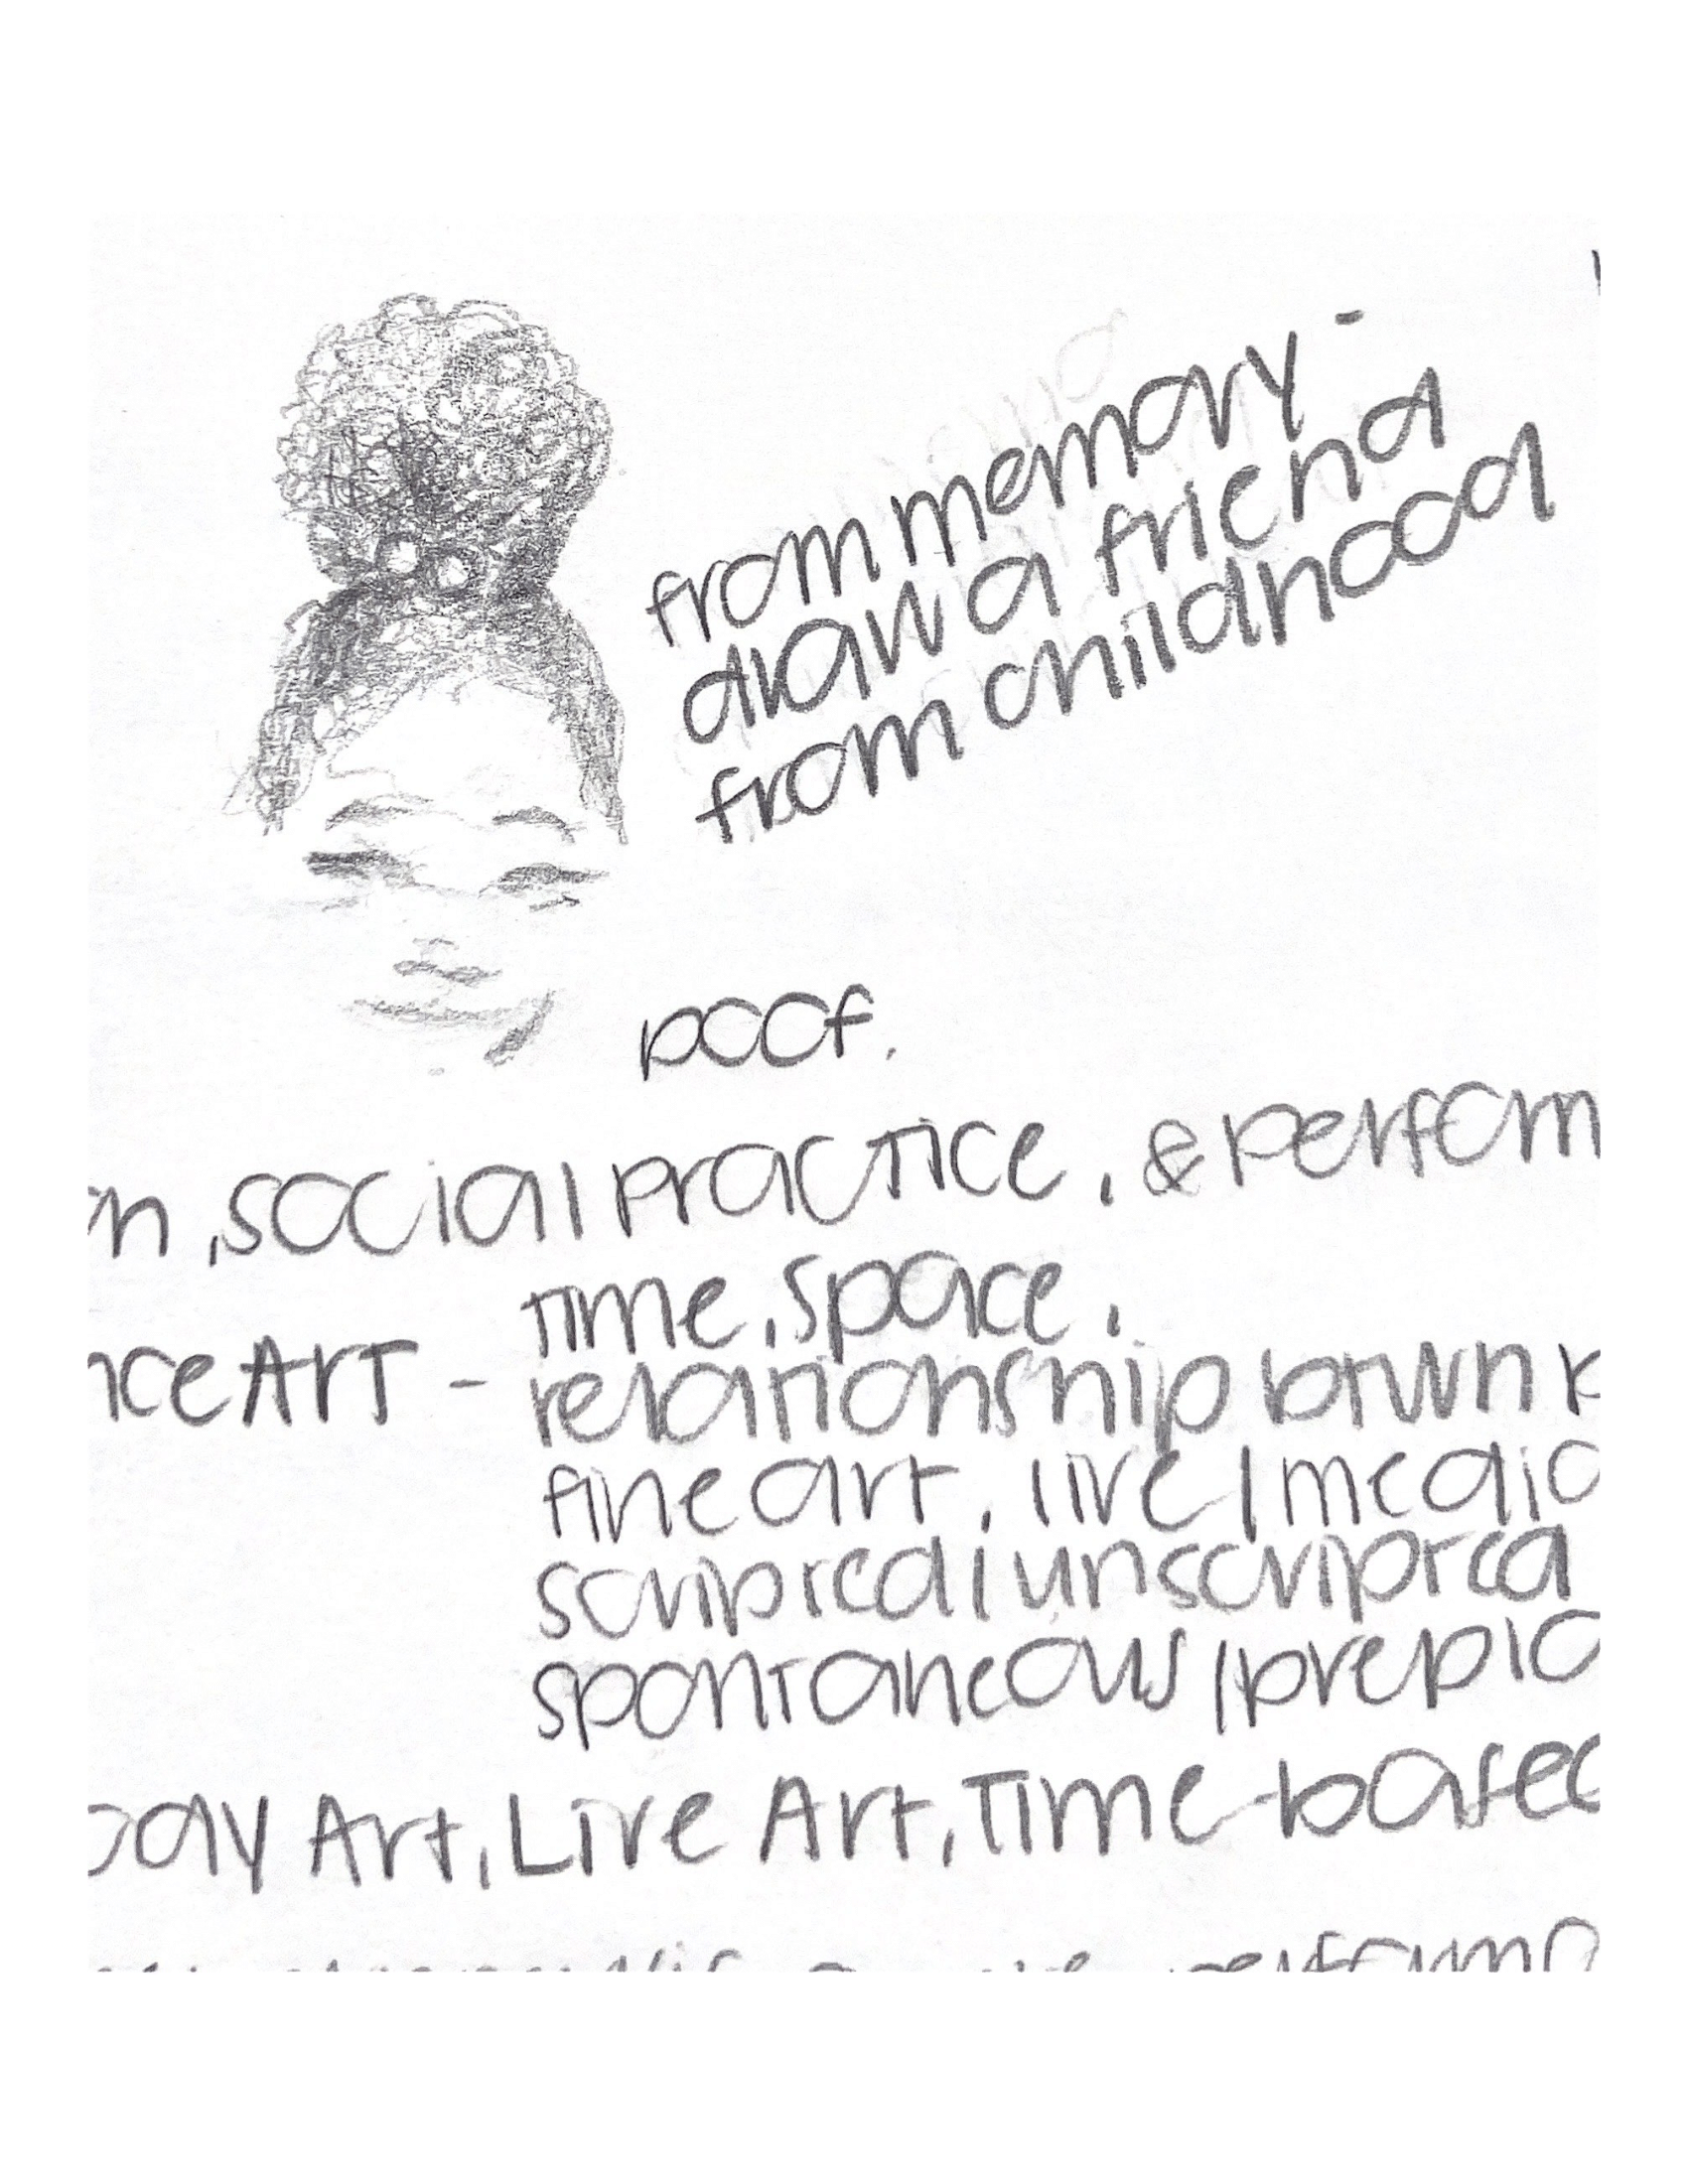 from memory -
draw a friend
from childhood
poof.
n, social practice, & perform
time, space,
nce Art - relationship btwn
fine art, live / media
scripted / unscripted
spontaneous / prepla
ody Art, Live Art, Time-based